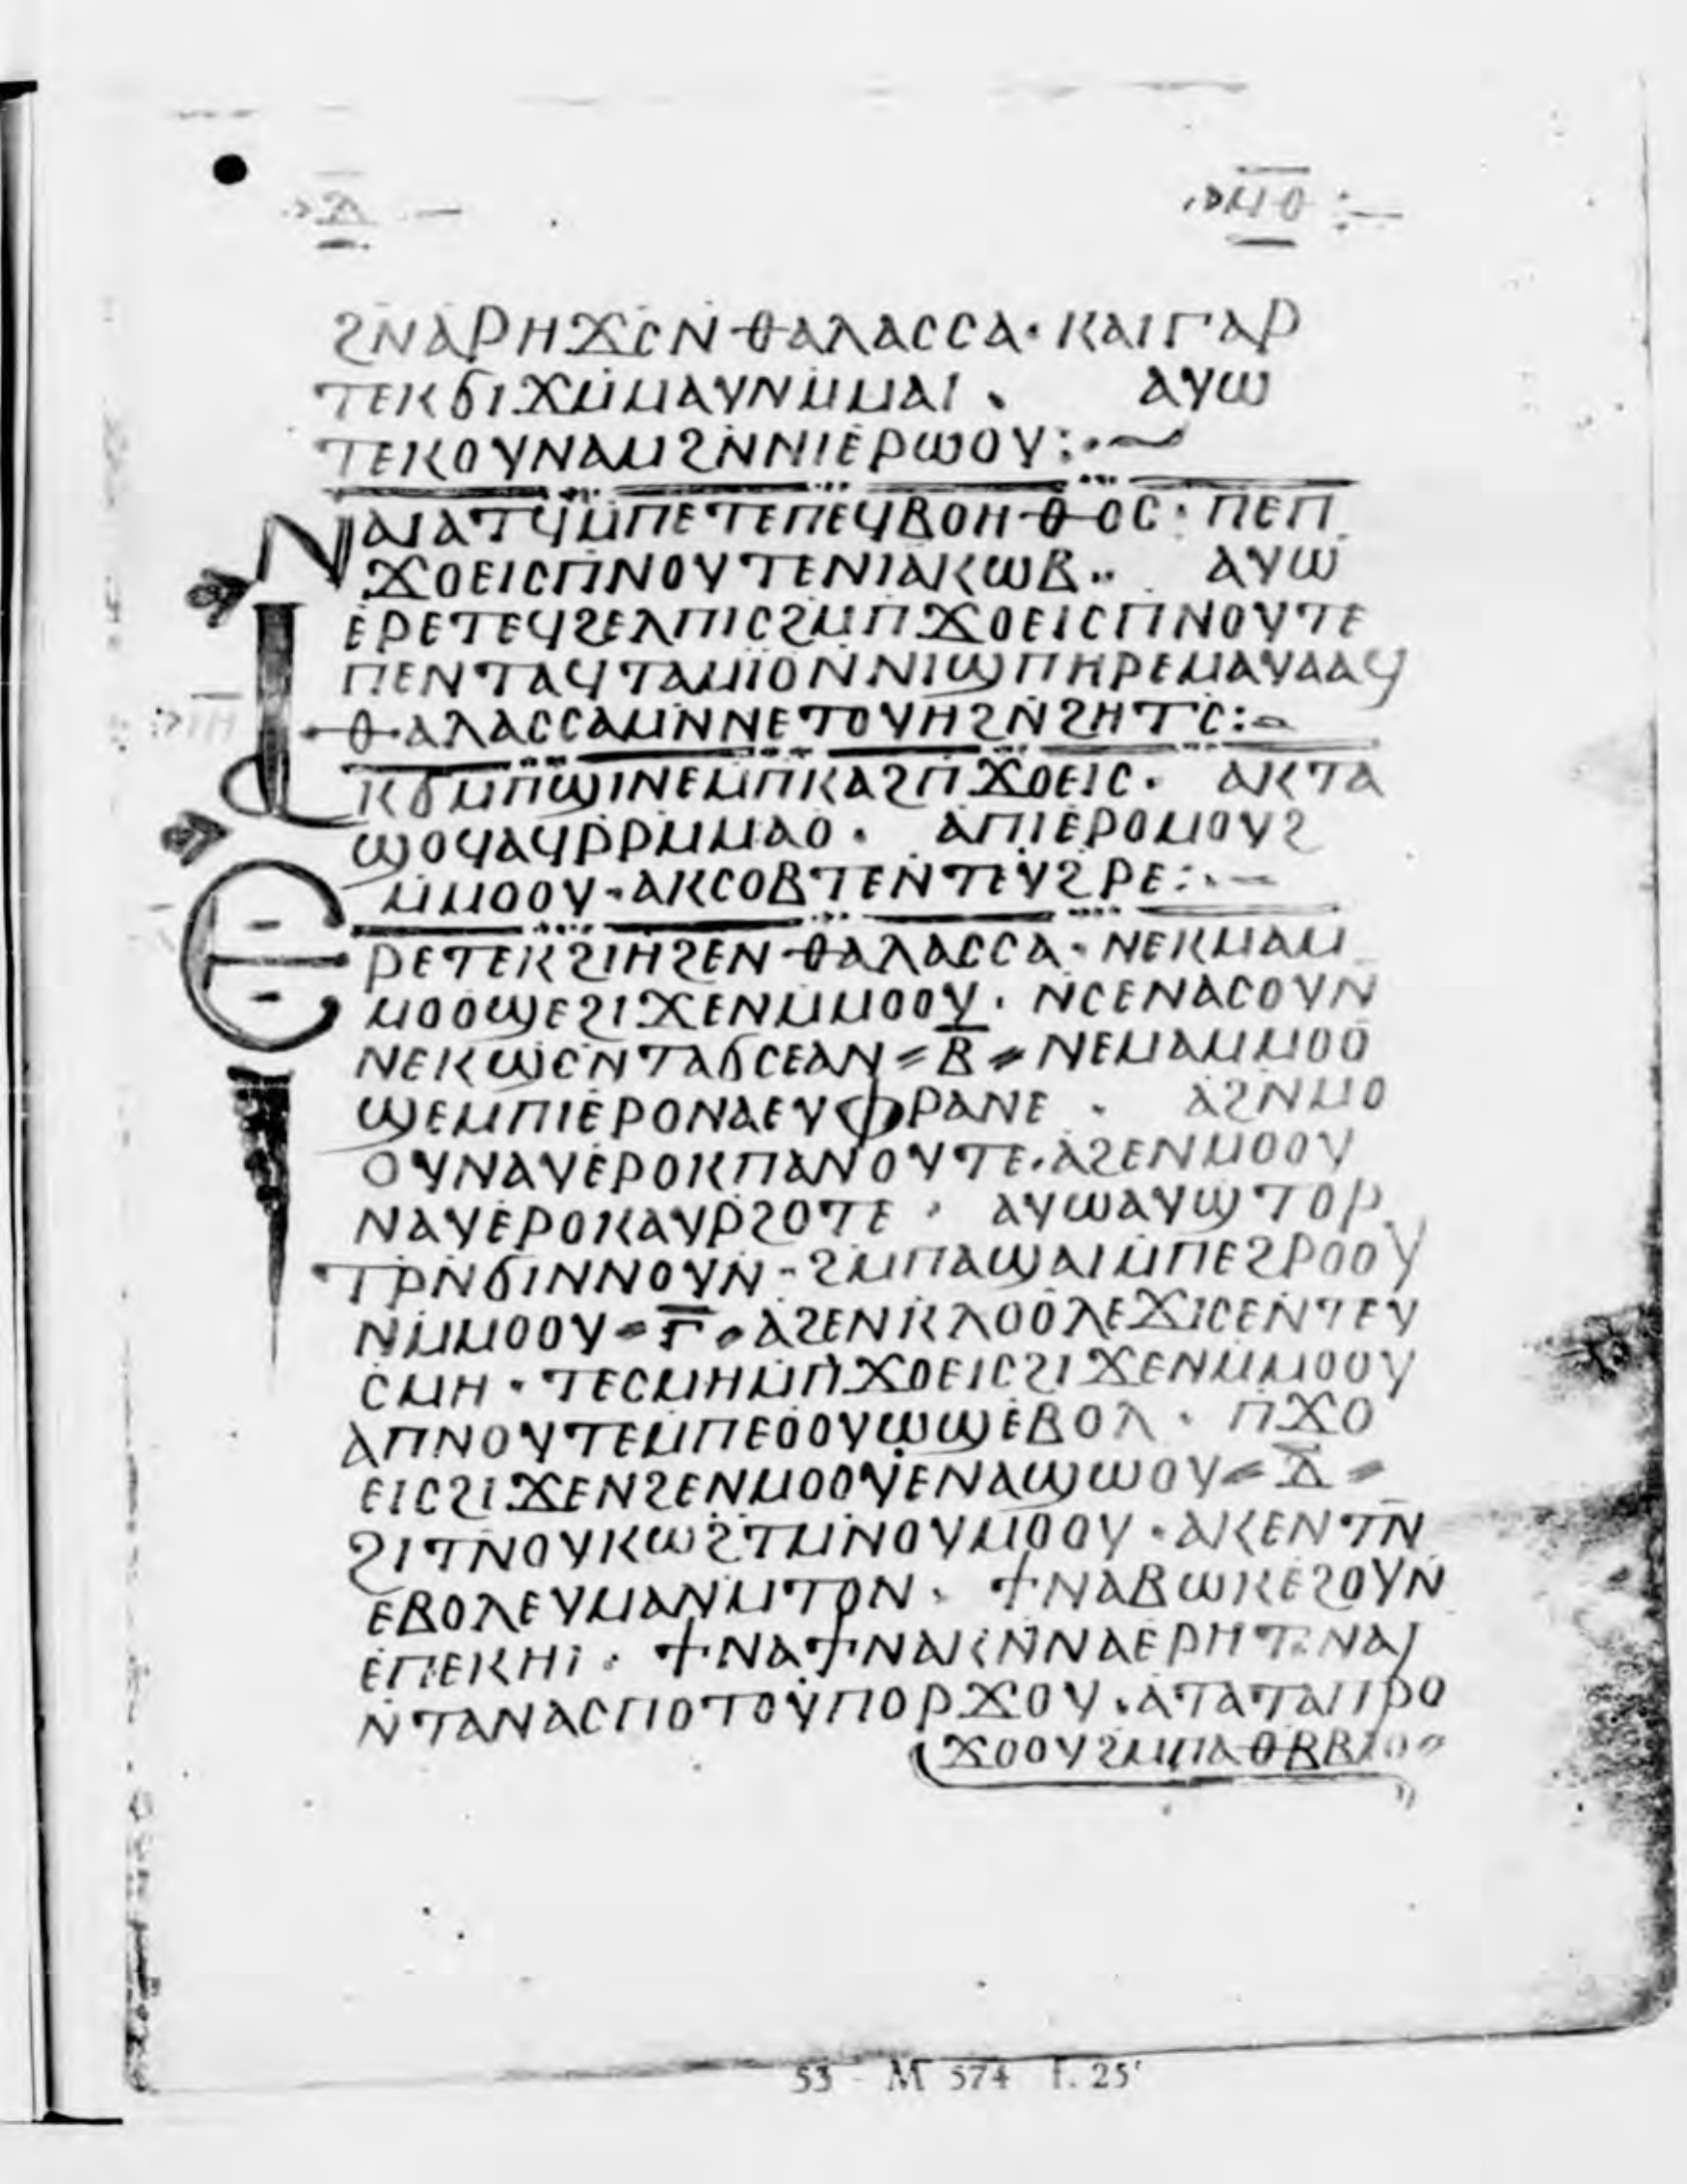 ϩⲛⲁⲣⲏϫⲥⲛ ⲑⲁⲗⲁⲥⲥⲁ· ⲕⲁⲓⲅⲁⲣ
ⲧⲉⲕϭⲓϫⲙ̇ⲙⲁⲩⲛⲙ̇ⲙⲁⲓ . ⲁⲩⲱ
ⲧⲉⲕⲟⲩⲛⲁⲙϩⲛ̇ⲛⲓⲉ̇ⲣⲱⲟⲩ:·—
ⲛⲁⲓⲁⲧϥⲙ̇ⲡⲉⲧⲉⲡⲉϥⲃⲟⲏⲑⲟⲥ· ⲡⲉⲡ
ϫⲟⲉⲓⲥⲡⲛⲟⲩⲧⲉⲛⲓⲁⲕⲱⲃ.. ⲁⲩⲱ
ⲉ̇ⲣⲉⲧⲉϥϩⲉⲗⲡⲓⲥϩⲙ̇ⲡϫⲟⲉⲓⲥⲡⲛⲟⲩⲧⲉ
ⲡⲉⲛⲧⲁϥⲧⲁⲙⲓⲟⲛ̇ⲛⲓϣⲡⲏⲣⲉⲙⲁⲩⲁⲁϥ
ⲑⲁⲗⲁⲥⲥⲁⲙⲛ̇ⲛⲉⲧⲟⲩⲏϩⲛ̇ϩⲏⲧⲥ:—
ⲁⲕϭⲙ̇ⲡϣⲓⲛⲉⲙ̇ⲡⲕⲁϩⲡϫⲟⲉⲓⲥ· ⲁⲕⲧⲁ
ϣⲟϥⲁϥⲣ̇ⲣⲙ̇ⲙⲁⲟ· ⲁⲡⲓⲉ̇ⲣⲟⲙⲟⲩϩ
ⲙ̇ⲙⲟⲟⲩ·ⲁⲕⲥⲟⲃⲧⲉⲛ̇ⲧⲉⲩϩⲣⲉ:·—
ⲉⲣⲉⲧⲉⲕϩⲓⲏϩⲉⲛ ⲑⲁⲗⲁⲥⲥⲁ· ⲛⲉⲕⲙⲁⲙ
ⲙⲟⲟϣⲉϩⲓϫⲉⲛⲙ̇ⲙⲟⲟⲩ· ⲛⲥⲉⲛⲁⲥⲟⲩⲛ
ⲛⲉⲕϣⲥⲛ̇ⲧⲁϭⲥⲉⲁⲛ = ⲃ̅ = ⲛⲉⲙⲁⲙⲙⲟⲟ
ϣⲉⲙ̇ⲡⲓⲉ̇ⲣⲟⲛⲁⲉⲩⲫⲣⲁⲛⲉ · ⲁϩⲛⲙⲟ
ⲟⲩⲛⲁⲩⲉ̇ⲣⲟⲕⲡⲁⲛⲟⲩⲧⲉ·ⲁϩⲉⲛⲙⲟⲟⲩ
ⲛⲁⲩⲉ̇ⲣⲟⲕⲁⲩⲣ̇ϩⲟⲧⲉ · ⲁⲩⲱⲁⲩϣⲧⲟⲣ
ⲧⲣ̇ⲛ̇ϭⲓⲛⲛⲟⲩⲛ· ϩⲙ̇ⲡⲁϣⲁⲓⲙ̇ⲡⲉϩⲣⲟⲟⲩ
ⲛⲙ̇ⲙⲟⲟⲩ = ⲅ̅ = ⲁϩⲉⲛⲕⲗⲟⲟⲗⲉϫⲓⲥⲉⲛ̇ⲧⲉⲩ
ⲥⲙⲏ · ⲧⲉⲥⲙⲏⲙ̇ⲡϫⲟⲉⲓⲥϩⲓϫⲉⲛⲙ̇ⲙⲟⲟⲩ
ⲁⲡⲛⲟⲩⲧⲉⲙⲡⲉⲟⲟⲩⲱϣⲉ̇ⲃⲟⲗ · ⲡϫⲟ
ⲉⲓⲥϩⲓϫⲉⲛϩⲉⲛⲙⲟⲟⲩⲉⲛⲁϣⲱⲟⲩ = ⲇ̅ =
ϩⲓⲧⲛⲟⲩⲕⲱϩⲧⲙ̇ⲛⲟⲩⲙⲟⲟⲩ·ⲁⲕⲉⲛⲧⲛ
ⲉⲃⲟⲗⲉⲩⲙⲁⲛⲙ̇ⲧⲟⲛ· ϯⲛⲁⲃⲱⲕⲉ̇ϩⲟⲩⲛ
ⲉ̇ⲡⲉⲕⲏⲓ· ϯⲛⲁϯⲛⲁⲕⲛ̇ⲛⲁⲉ̇ⲣⲏⲧ ⲛⲁⲓ
ⲛ̇ⲧⲁⲛⲁⲥⲡⲟⲧⲟⲩⲡⲟⲣϫⲟⲩ·ⲁⲧⲁⲧⲁⲡⲣⲟ
ϫⲟⲟⲩϩⲙ̇ⲡⲁⲑⲃⲃⲓⲟ
53 - M 574 f. 25'